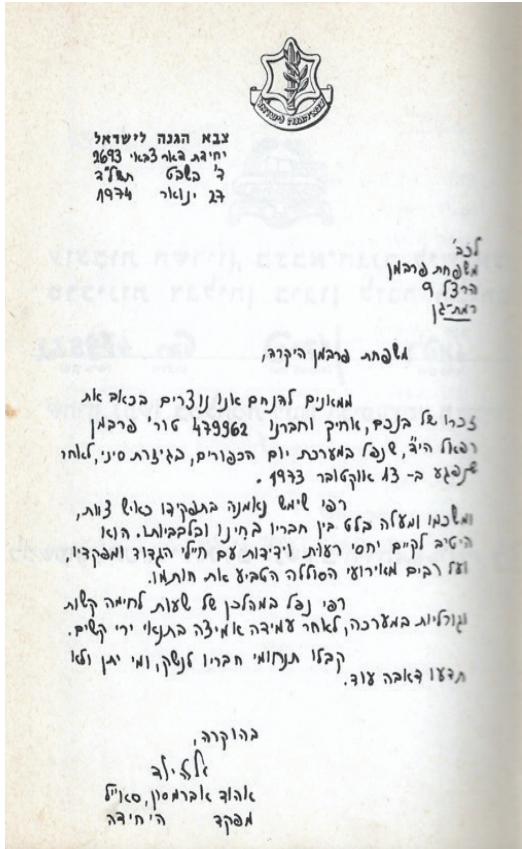 צבא הגנה לישראל
צבא הגנה לישראל
יחידת דאר צבאי 2693
ד' בשבט תשל"ד
27 ינואר 1974
לכב'
משפחת פרבמן
הרצל 9
רמת-גן
משפחת פרבמן היקרה,
ממאנים להנחם אנו נוצרים בכאב את
זכרו של בנכם, אחיך וחברנו 479962 טור' פרבמן
רפאל הי"ד, שנפל במערכת יום הכפורים, בגיזרת סיני, לאחר
שנפגע ב- 13 אוקטובר 1973.
רפי שימש נאמנה בתפקידו כאיש צוות,
ומשכמו ומעלה בלט בין חבריו בחינו ובלבביותו. הוא
היטיב לקיים יחסי רעות וידידות עם חיילי הגדוד ומפקדיו,
ועל רבים מאירועי הסוללה הטביע את חותמו.
רפי נפל במהלכן של שעות לחימה קשות
וגורליות במערכה, לאחר עמידה אמיצה בתנאי ירי קשים.
קבלו תנחומי חבריו לנשק, ומי יתן ולא
תדעו דאבה עוד.
בהוקרה,
אהוד אברמסון, סא"ל
מפקד היחידה